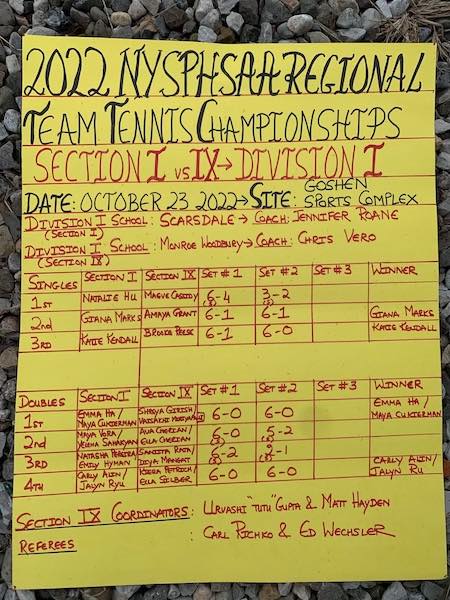 2022 NYSPHSAA REGIONAL
TEAM TENNIS CHAMPIONSHIPS
SECTION I VS IX → DIVISION I
DATE: OCTOBER 23 2022 → SITE: GOSHEN SPORTS COMPLEX
DIVISION I SCHOOL: SCARSDALE → COACH: JENNIFER ROANE
(SECTION I)
DIVISION I SCHOOL: MONROE WOODBURY → COACH: CHRIS VERO
(SECTION IX)
SINGLES SECTION I SECTION IX SET #1 SET #2 SET #3 WINNER
1ST NATALIE HU MAEVE CASSIDY 6-4 3-2
2ND GIANA MARKS AMAYA GRANT 6-1 6-1 GIANA MARKS
3RD KATIE KENDALL BROOKE REESE 6-1 6-0 KATIE KENDALL
DOUBLES SECTION I SECTION IX SET #1 SET #2 SET #3 WINNER
1ST EMMA HA/ MAYA CUKIERMAN SHREYA GIRISH/ 6-0 6-0 EMMA HA/ MAYA CUKIERMAN
2ND MAYA VORA/ SAHAKYAN AVA CHERIAN/ ELLA CHERIAN 6-0 5-2
3RD NATASHA PEREIRA/ EMILY HYMAN SANJITA RAJA/ DIYA MANGAT 6-2 -1
4TH CARLY ALIN/ JALYN RYU PETRICH/ ELLA SILBER 6-0 6-0 CARLY ALIN/ JALYN RU
SECTION IX COORDINATORS: URVASHI "TUTU" GUPTA & MATT HAYDEN
REFEREES CARL RICHKO & ED WECHSLER